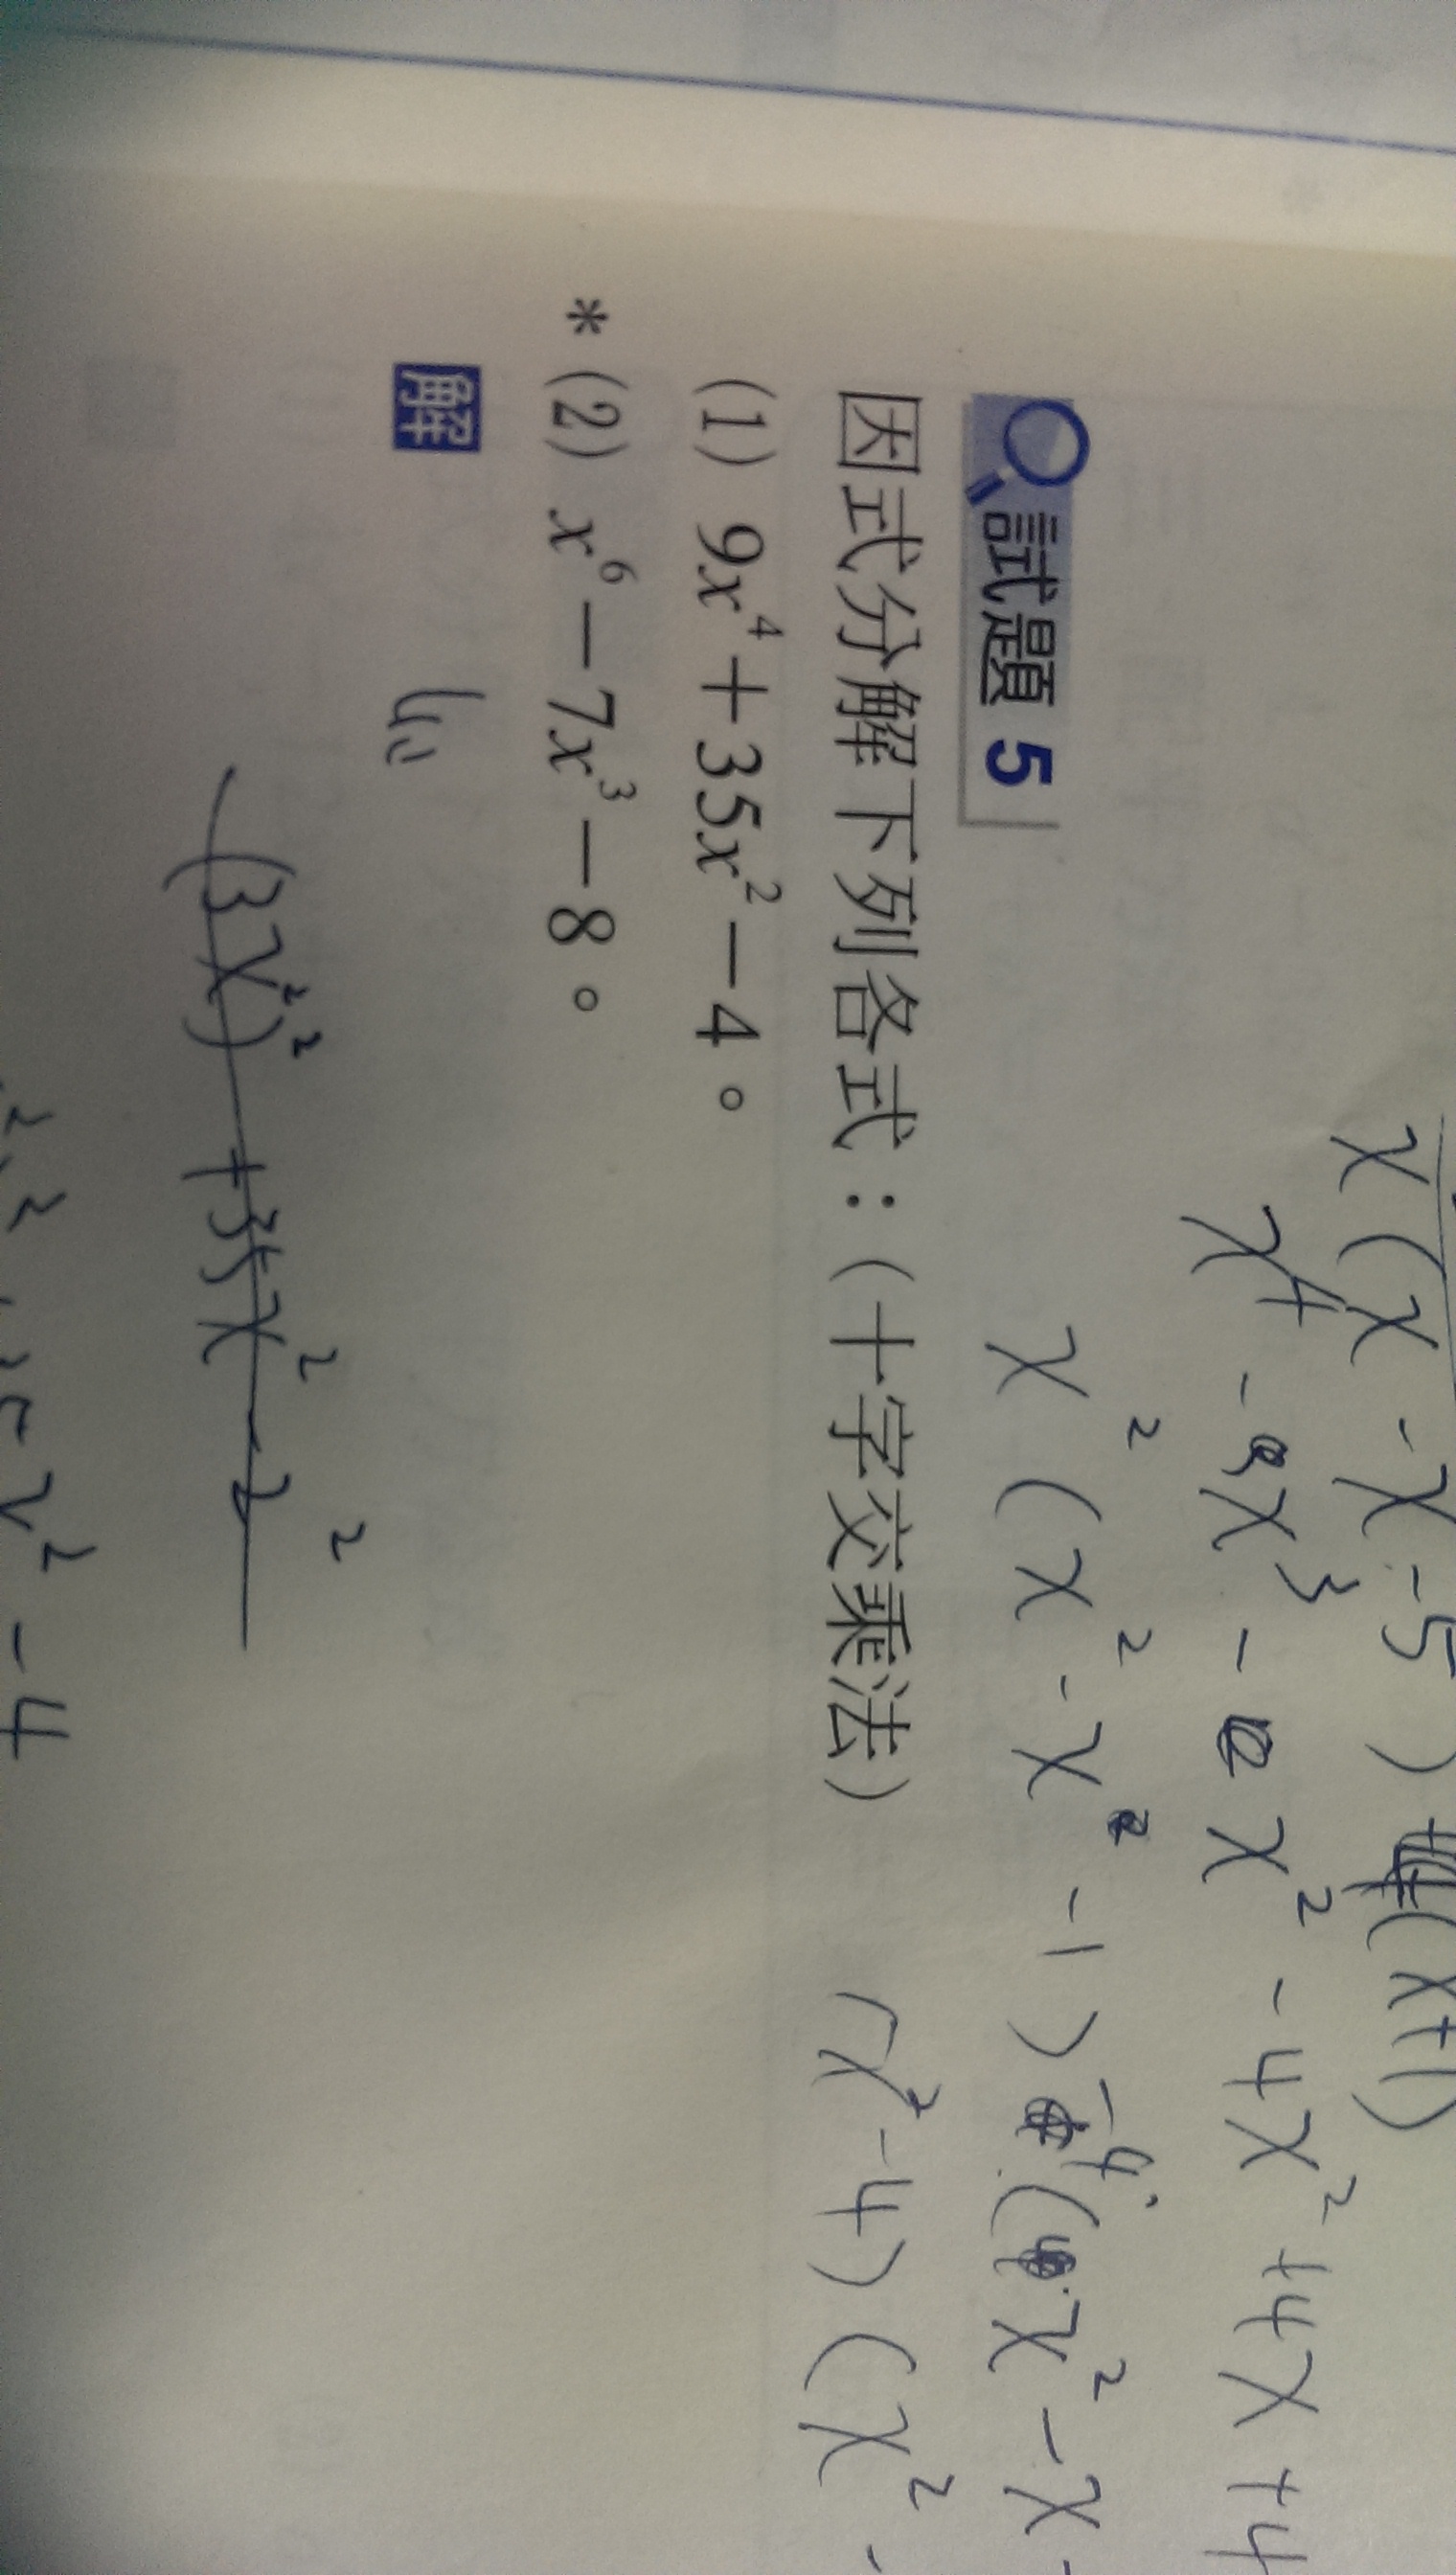 x(x-x-5)(x+1)
x⁴-x³-x²-4x²+4x+4
x²(x²-x-1)-4(x²-x-
試題 5
(x²-4)(x²-
因式分解下列各式：（十字交乘法）
(1) 9x⁴+35x²-4。
*(2) x⁶-7x³-8。
解
(3x²)²+35x²-2²
x²-4